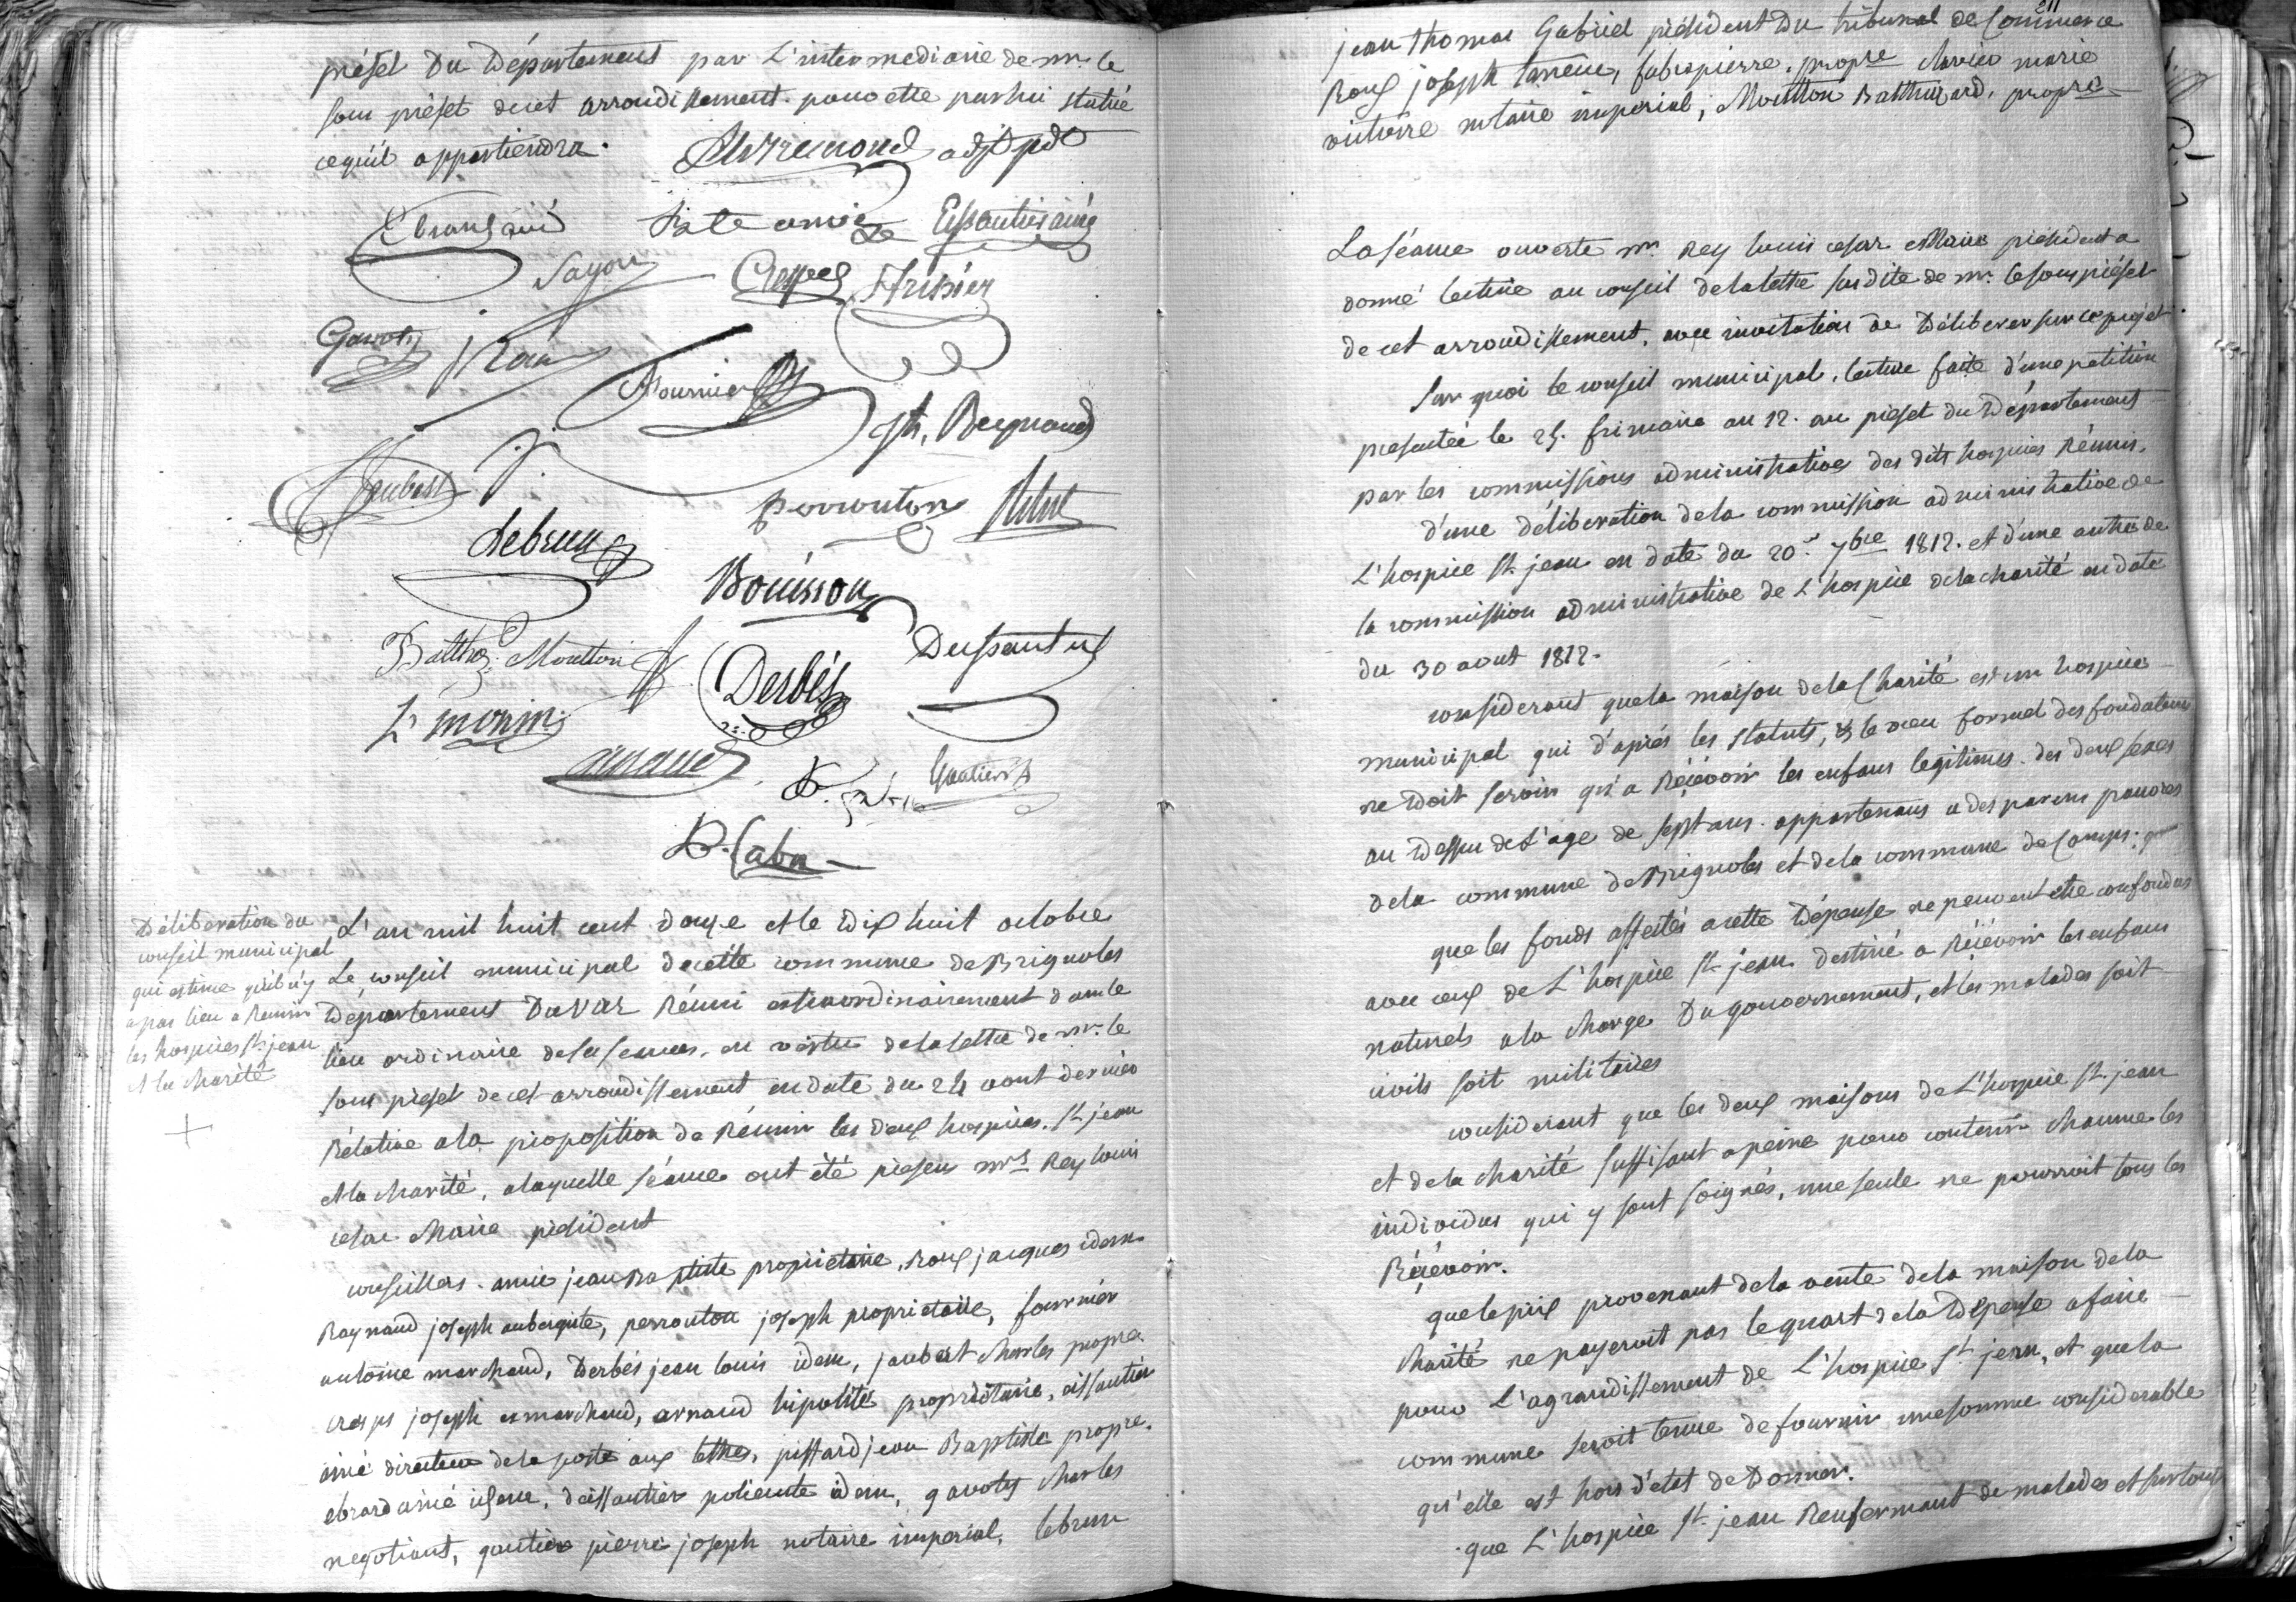 préfet Du Département par L'intermediaire de mr. le
sous préfet de cet arrondissement. pour etre par lui statué
ce qu'il appartiendra.
adjt pdt
Ebrard ainé
Essautier ainé
Sayou
Crespes
Gavoty
Roux
Fournier
jh. Reynaud
Jaubert
perrouton
Lebrun
Bouisson
Balthd. Moutton
Derbès
Dessautier
Lt monin
arnaud
Gautier
Délibération du
conseil municipal
qui estime qu'il n'y
a pas lieu a Réunir
les hospices St. jean
et la charité
L'an mil huit cent douze et le Dix huit octobre
Le conseil municipal de cette commune de Brignoles
Département Du Var Réuni extraordinairement dans le
lieu ordinaire de ses seances, en vertu de la lettre de mr. le
sous préfet de cet arrondissement en date du 24 aout dernier
Rélative a la proposition de Réunir les deux hospices. St. jean
et la charité, a laquelle séance ont été présens mrs Rey louis
cesar Maire président
conseillers. amic jean Baptiste propriétaire, Roux jacques idem
Raynaud joseph aubergiste, perrouton joseph proprietaire, fournier
antoine marchand, Derbés jean louis idem, jaubert charles propre.
cresps joseph exmarchand, arnaud hipolite propriétaire, essautier
ainé directeur de la poste aux lettres, piffard jean Baptiste propre.
ebrard ainé idem, dessautier policarte idem, gavoty charles
negotiant, gautier pierre joseph notaire imperial, lebrun
211
jean thomas Gabriel président Du tribunal de Commerce
Roux joseph taneur, fabre pierre propre clavier marie
victoire notaire imperial, Moutton Balthazard, propre
La séance ouverte mr. Rey louis cesar Maire président a
donné lecture au conseil de la lettre susdite de mr. le sous préfet
de cet arrondissement, avec invitation de Déliberer sur ce projet.
Sur quoi le conseil municipal, lecture faite d'une petition
presentée le 25. frimaire an 12. au préfet du Département
par les commissions administratives des dits hospices Réunis.
d'une déliberation de la commission administrative de
L'hospice St. jean en date du 20. 7bre 1812. et d'une autre de
la commission administrative de L'hospice de la charité en date
du 30 aout 1812.
considerant que la maison de la Charité est un hospice
municipal qui d'aprés les statuts, & le vœu formel des fondateurs
ne Doit servir qu'a Réçévoir les enfans legitimes. des deux sexes
au Dessus de L'age de sept ans. appartenans a des parens pauvres
de la commune de Brignoles et de la commune de Camps.
que les fonds affectés a cette Dépense ne peuvent etre confondus
avec ceux de L'hospice St. jean destiné a Réçévoir les enfans
naturels a la charge Du gouvernement, et les malades soit
civils soit militaires
considerant que les deux maisons de L'hospice St. jean
et de la charité suffisant a peine pour contenir chacune les
individus qui y sont soignés, une seule ne pourroit tous les
Réçévoir.
que le prix provenant de la vente de la maison de la
charité ne payeroit pas le quart de la Dépense a faire
pour L'agrandissement de L'hospice St. jean, et que la
commune seroit tenue de fournir une somme considerable
qu'elle est hors d'etat de Donner.
que L'hospice St. jean Renfermant de malades et surtout